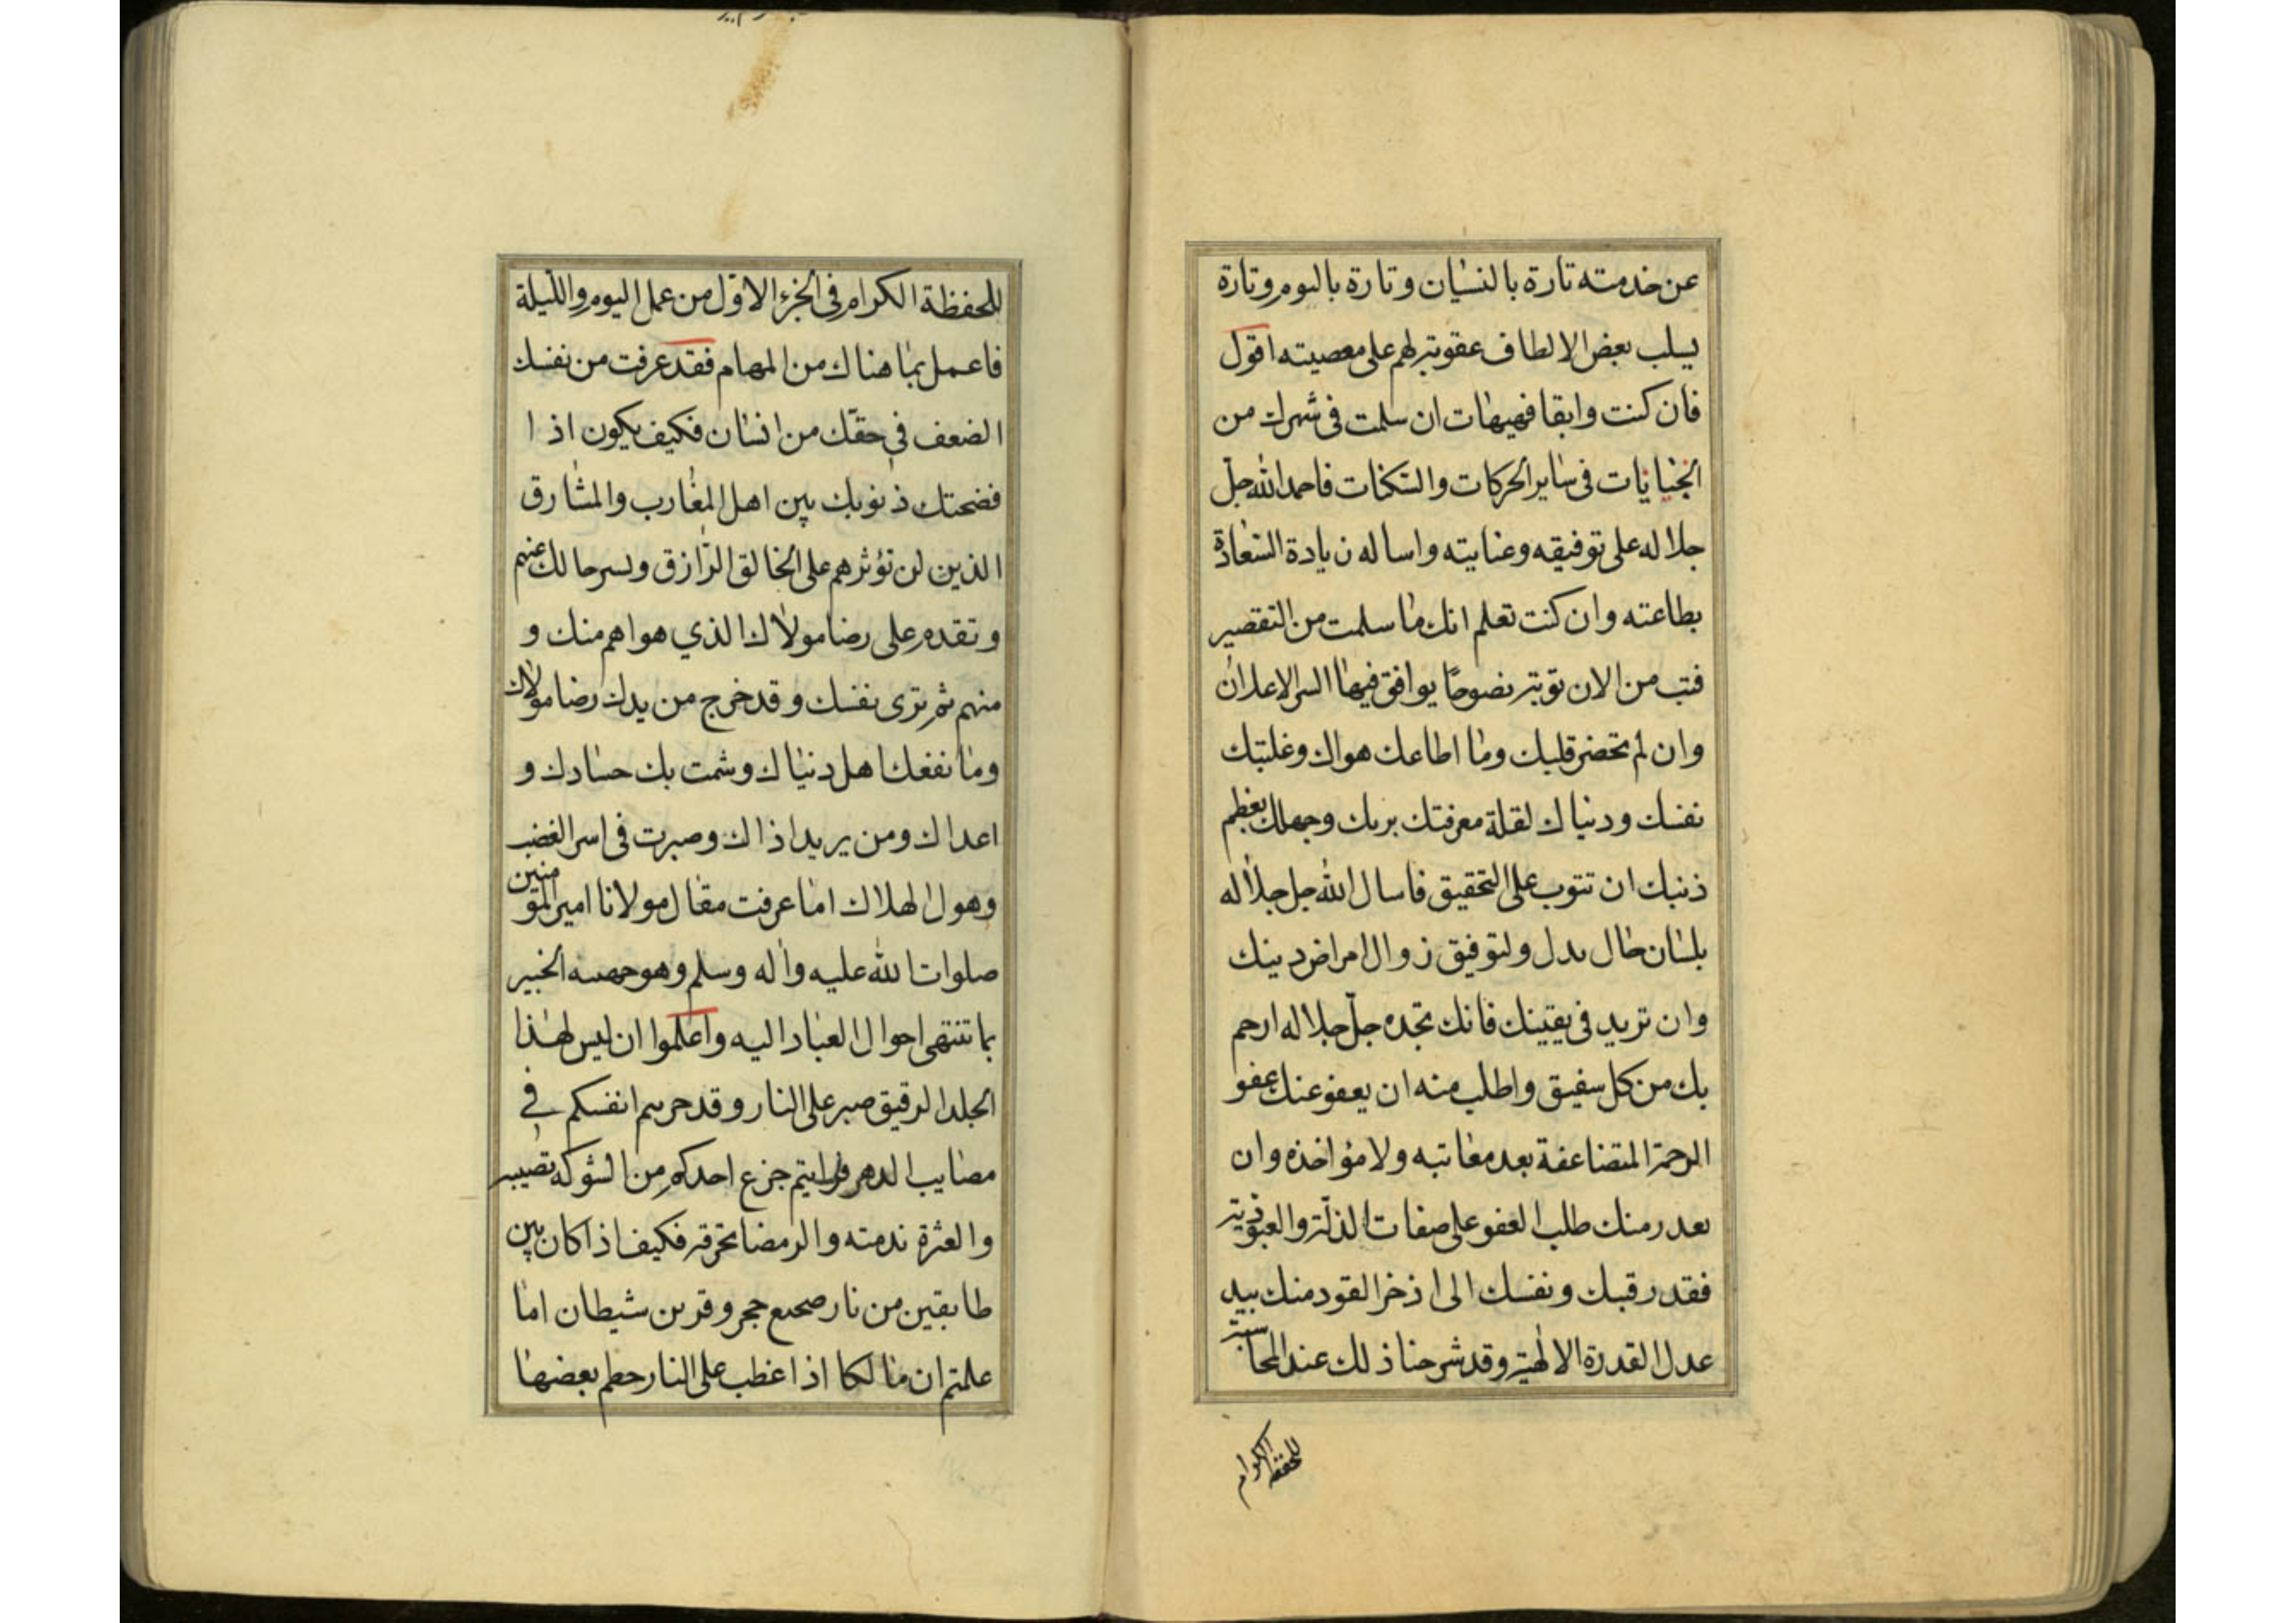 عن خدمته تارة بالنسيان وتارة بالنوم وتارة
يسلب بعض الالطاف عقوبة لهم على معصيته اقول
فان كنت وابقا فهيهات ان سلمت في شهرك من
الجنايات في ساير الحركات والسكنات فاحمد الله جل
جلاله على توفيقه وعنايته واساله زيادة السعادة
بطاعته وان كنت تعلم انك ما سلمت من التقصير
فتب من الان توبة نصوحا يوافق فيها السر الاعلان
وان لم تحضر قلبك وما اطاعك هواك وغلبتك
نفسك ودنياك لقلة معرفتك بربك وجهلك بعظم
ذنبك ان تتوب على التحقيق فاسال الله جل جلاله
بلسان حال بدل ولتوفيق زوال امراض دينك
وان تزيد في يقينك فانك تجده جل جلاله ارحم
بك من كل سفيق واطلب منه ان يعفو عنك عفو
الرحمة المتضاعفة بعد معاتبه ولا مؤاخذه وان
تعدر منك طلب العفو على صفات الذلة والعبودية
فقد رقبك ونفسك الى اذخر القود منك بيد
عدل القدرة الالهية وقد شرحنا ذلك عند المحاسبة
للحفظة الكرام
للحفظة الكرام في الجزء الاول من عمل اليوم والليلة
فاعمل بما هناك من المهام فقد عرفت من نفسك
الضعف في حقك من انسان فكيف يكون اذا
فضحتك ذنوبك بين اهل المغارب والمشارق
الذين لن تؤثرهم على الخالق الرازق ولسرحالك عنهم
وتقدم على رضا مولاك الذي هو اهم منك و
منهم ثم ترى نفسك وقد خرج من يدك رضا مولاك
وما نفعك اهل دنياك وشمت بك حسادك و
اعداك ومن يريد اذاك وصبرت في اسر الغضب
وهول الهلاك اما عرفت مقال مولانا امير المؤمنين
صلوات الله عليه واله وسلم وهو الخبير
بما تنتهي احوال العباد اليه واعلموا ان ليس لهذا
الجلد الرقيق صبر على النار وقد حرسم انفسكم في
مصايب الدهر فرايتم جزع احدكم من الشوكه تصيبه
والعثرة ندمته والرمضا تحرقه فكيف اذا كان بين
طابقين من نار صحيع حجر وقرين شيطان اما
علمتم ان مالكا اذا غطب على النار حطم بعضها